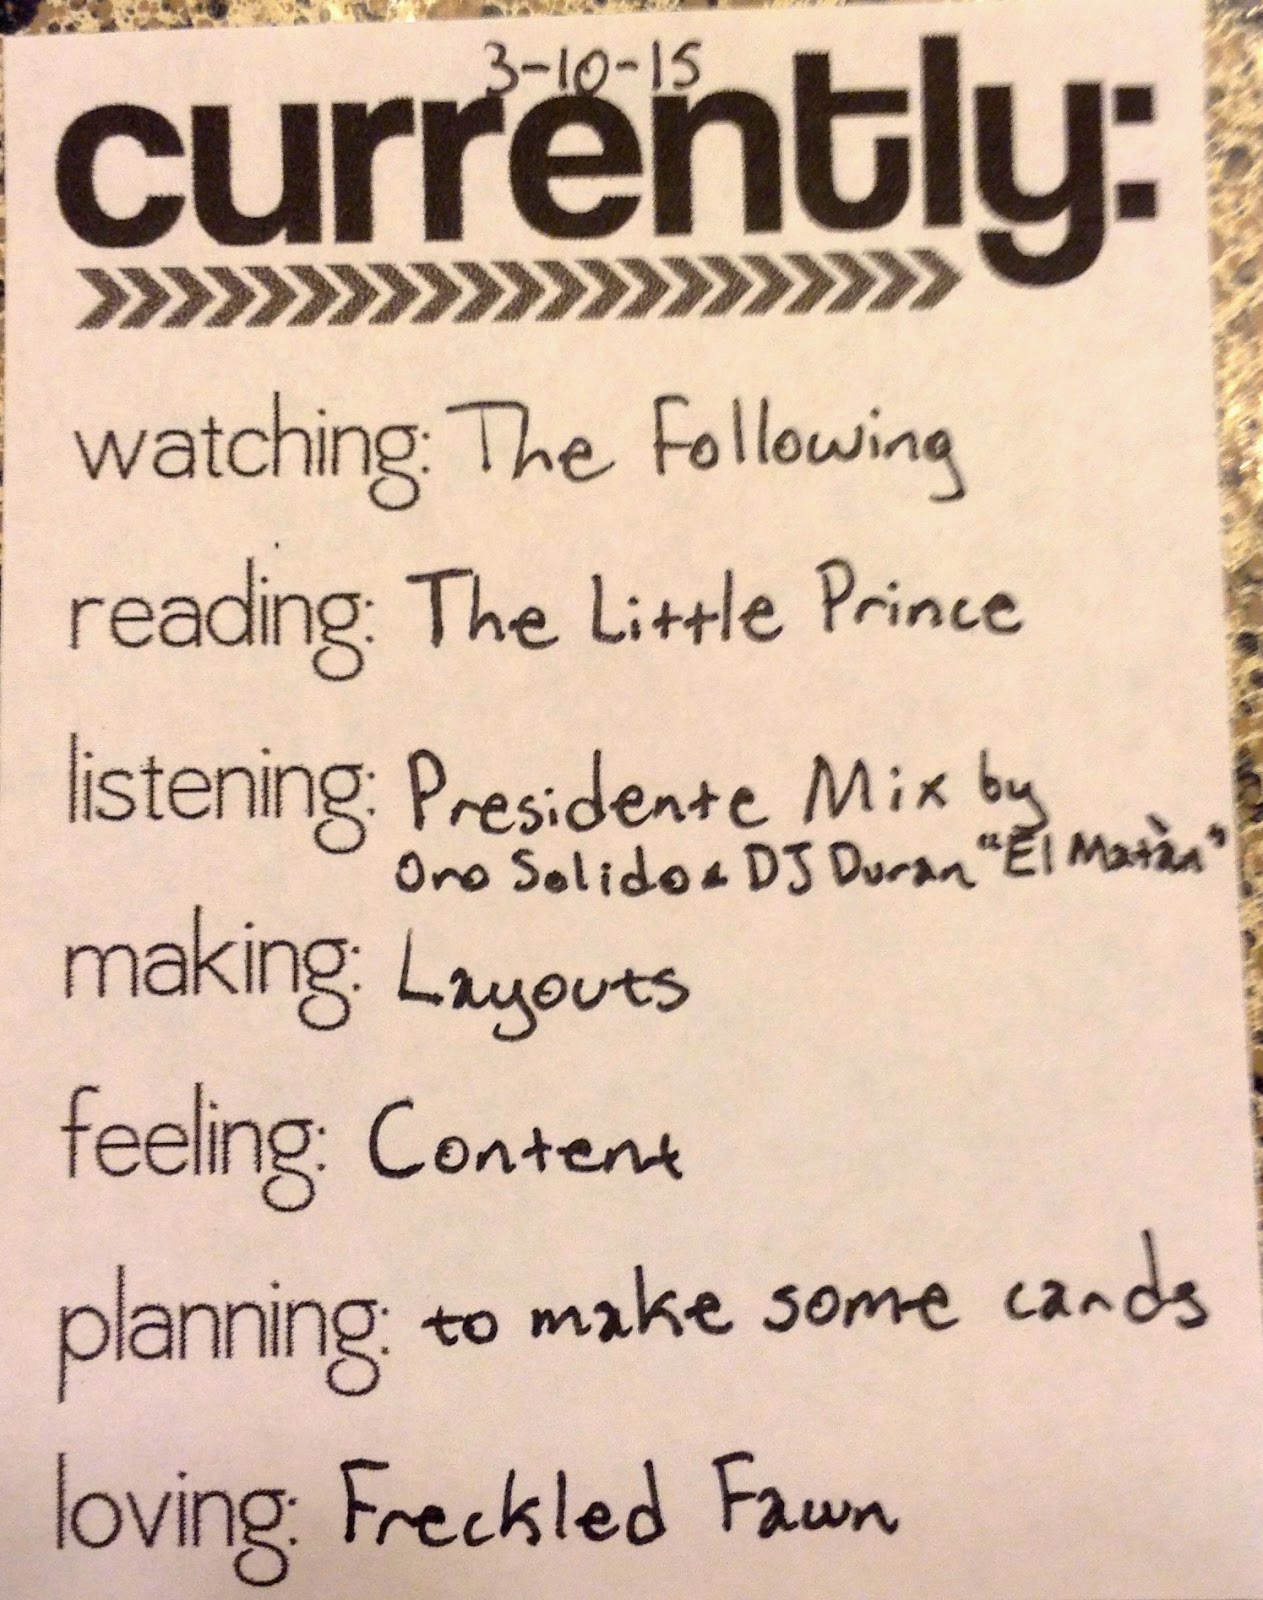 3-10-15
currently:
watching: The Following
reading: The Little Prince
listening: Presidente Mix by
Oro Solido & DJ Duran "El Matàn"
making: Layouts
feeling: Content
planning: to make some cards
loving: Freckled Fawn